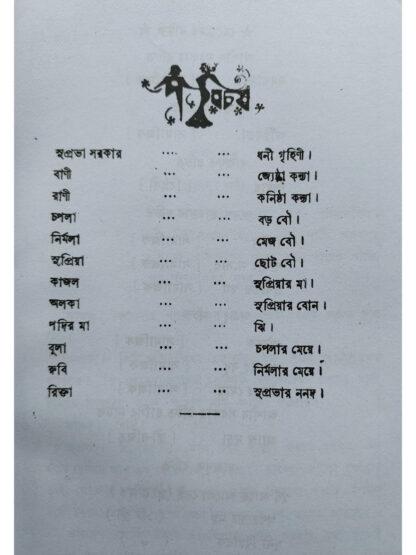 পরিচয়
সুপ্রভা সরকার ... ... ধনী গৃহিণী।
বাণী ... ... জ্যেষ্ঠা কন্যা।
রাণী ... ... কনিষ্ঠা কন্যা।
চপলা ... ... বড় বৌ।
নির্মলা ... ... মেজ বৌ।
সুপ্রিয়া ... ... ছোট বৌ।
কাজল ... ... সুপ্রিয়ার মা।
অলকা ... ... সুপ্রিয়ার বোন।
পদ্মির মা ... ... ঝি।
বুলা ... ... চপলার মেয়ে।
রুবি ... ... নির্মলার মেয়ে।
রিক্তা ... ... সুপ্রভার ননদ।